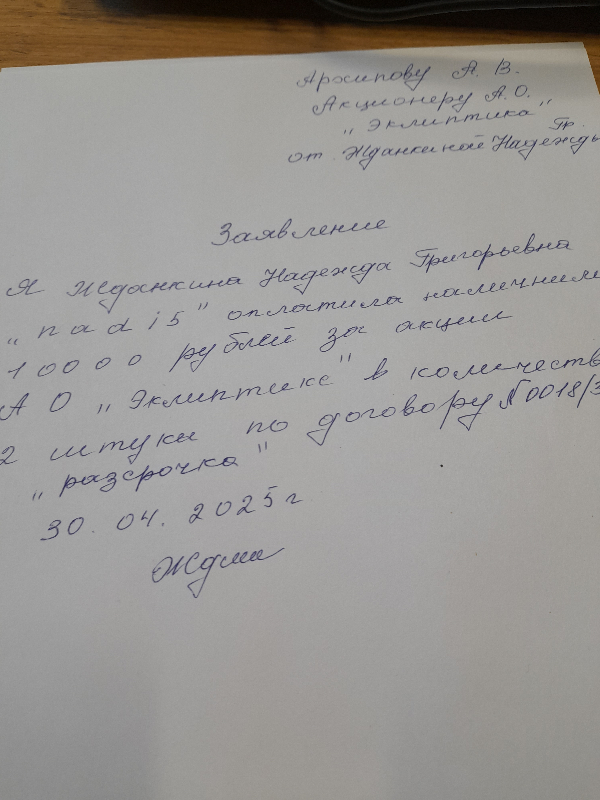 Архипову А. В.
Акционеру А.О.
„Эклиптика"
Гр.
от Жданкиной Надежды
Заявление
Я Жданкина Надежда Григорьевна
„nadi5" оплатила наличными
10000 рублей за акции
АО „Эклиптике" в количеств
2 штуки по договору №0018/3
„разсрочка"
30. 04. 2025г